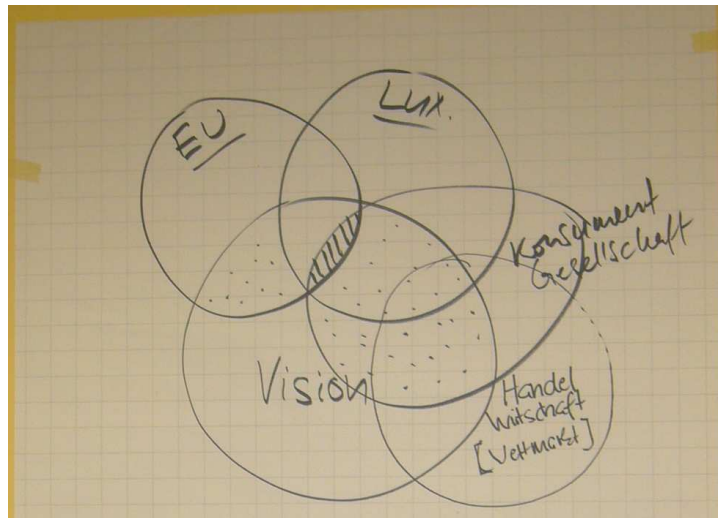 EU
Lux.
Konsument
Gesellschaft
Vision
Handel
Witschaft